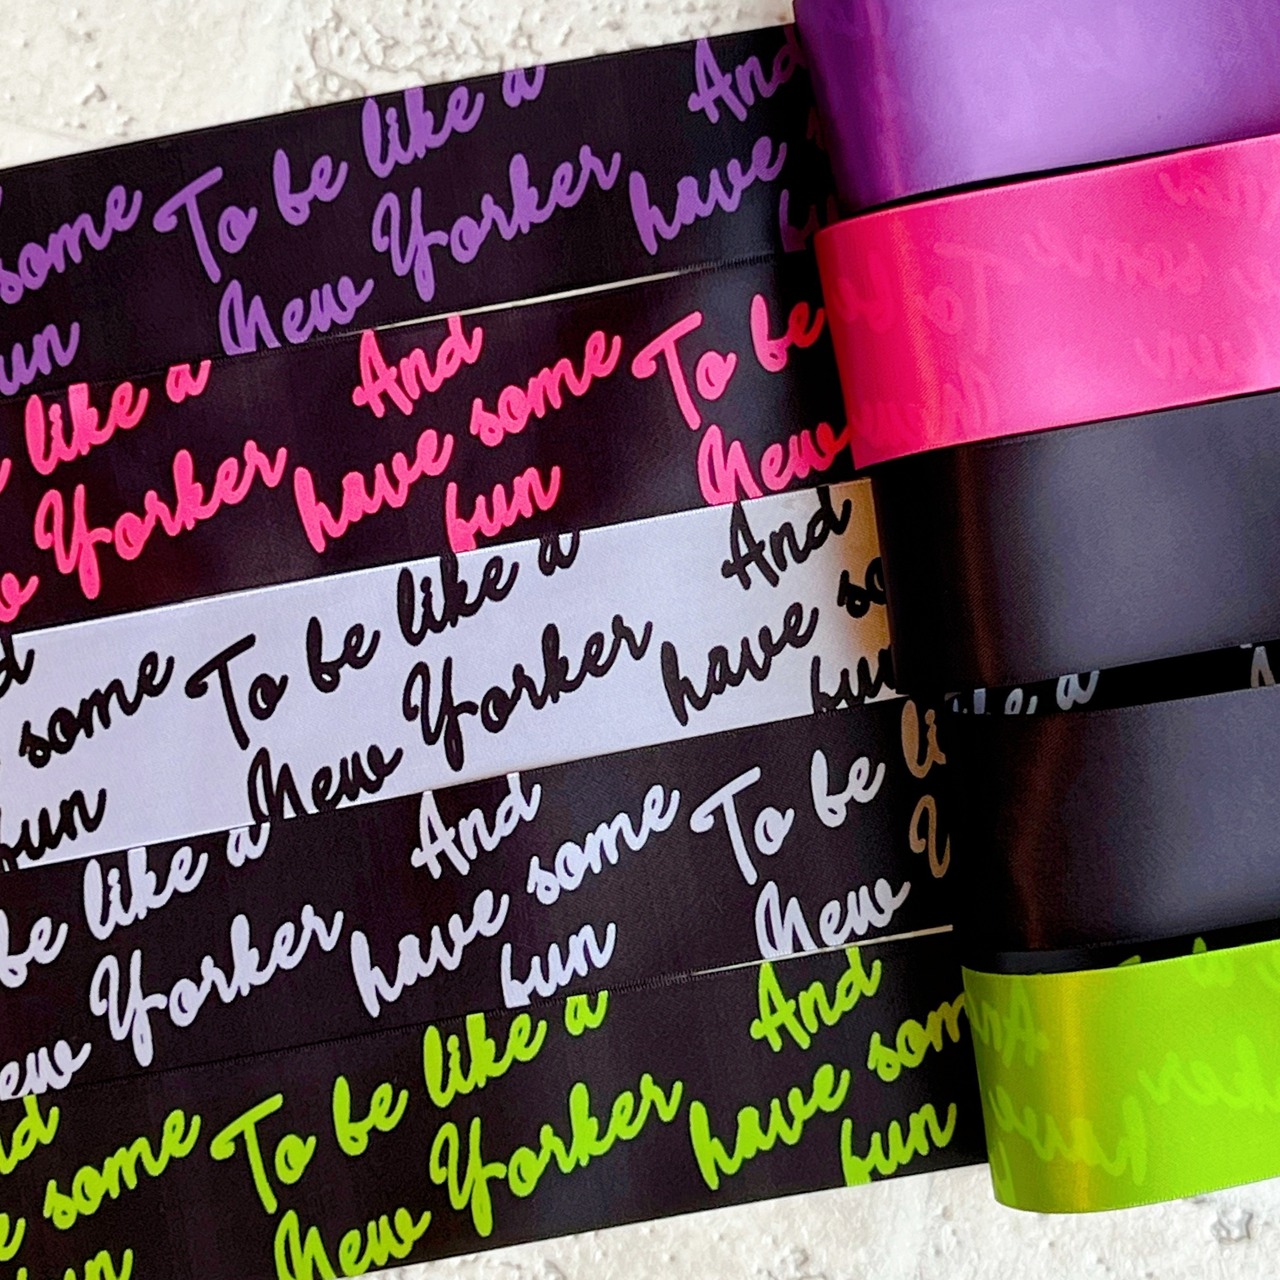 some To be like a And
fun New Yorker have
like a And To be
Yorker have some New
fun
some To be like a And
fun New Yorker have so
fun
be like a And To be li
Yorker have some New
ew fun
like a
To be like a And
some New Yorker have som
fun